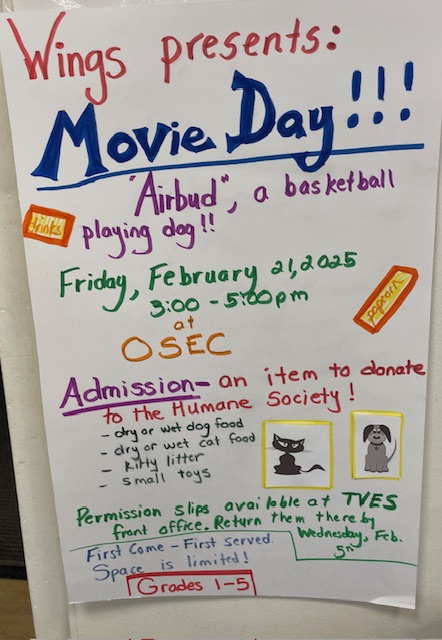 Wings presents:
Movie Day!!!
"Airbud", a basketball
drinks
playing dog!!
Friday, February 21, 2025
3:00 - 5:00pm
popcorn
at
OSEC
Admission - an item to donate
to the Humane Society!
- dry or wet dog food
- dry or wet cat food
- kitty litter
- small toys
Permission slips available at TVES
front office. Return them there by
Wednesday, Feb.
5th
First Come - First served.
Space is limited!
Grades 1-5